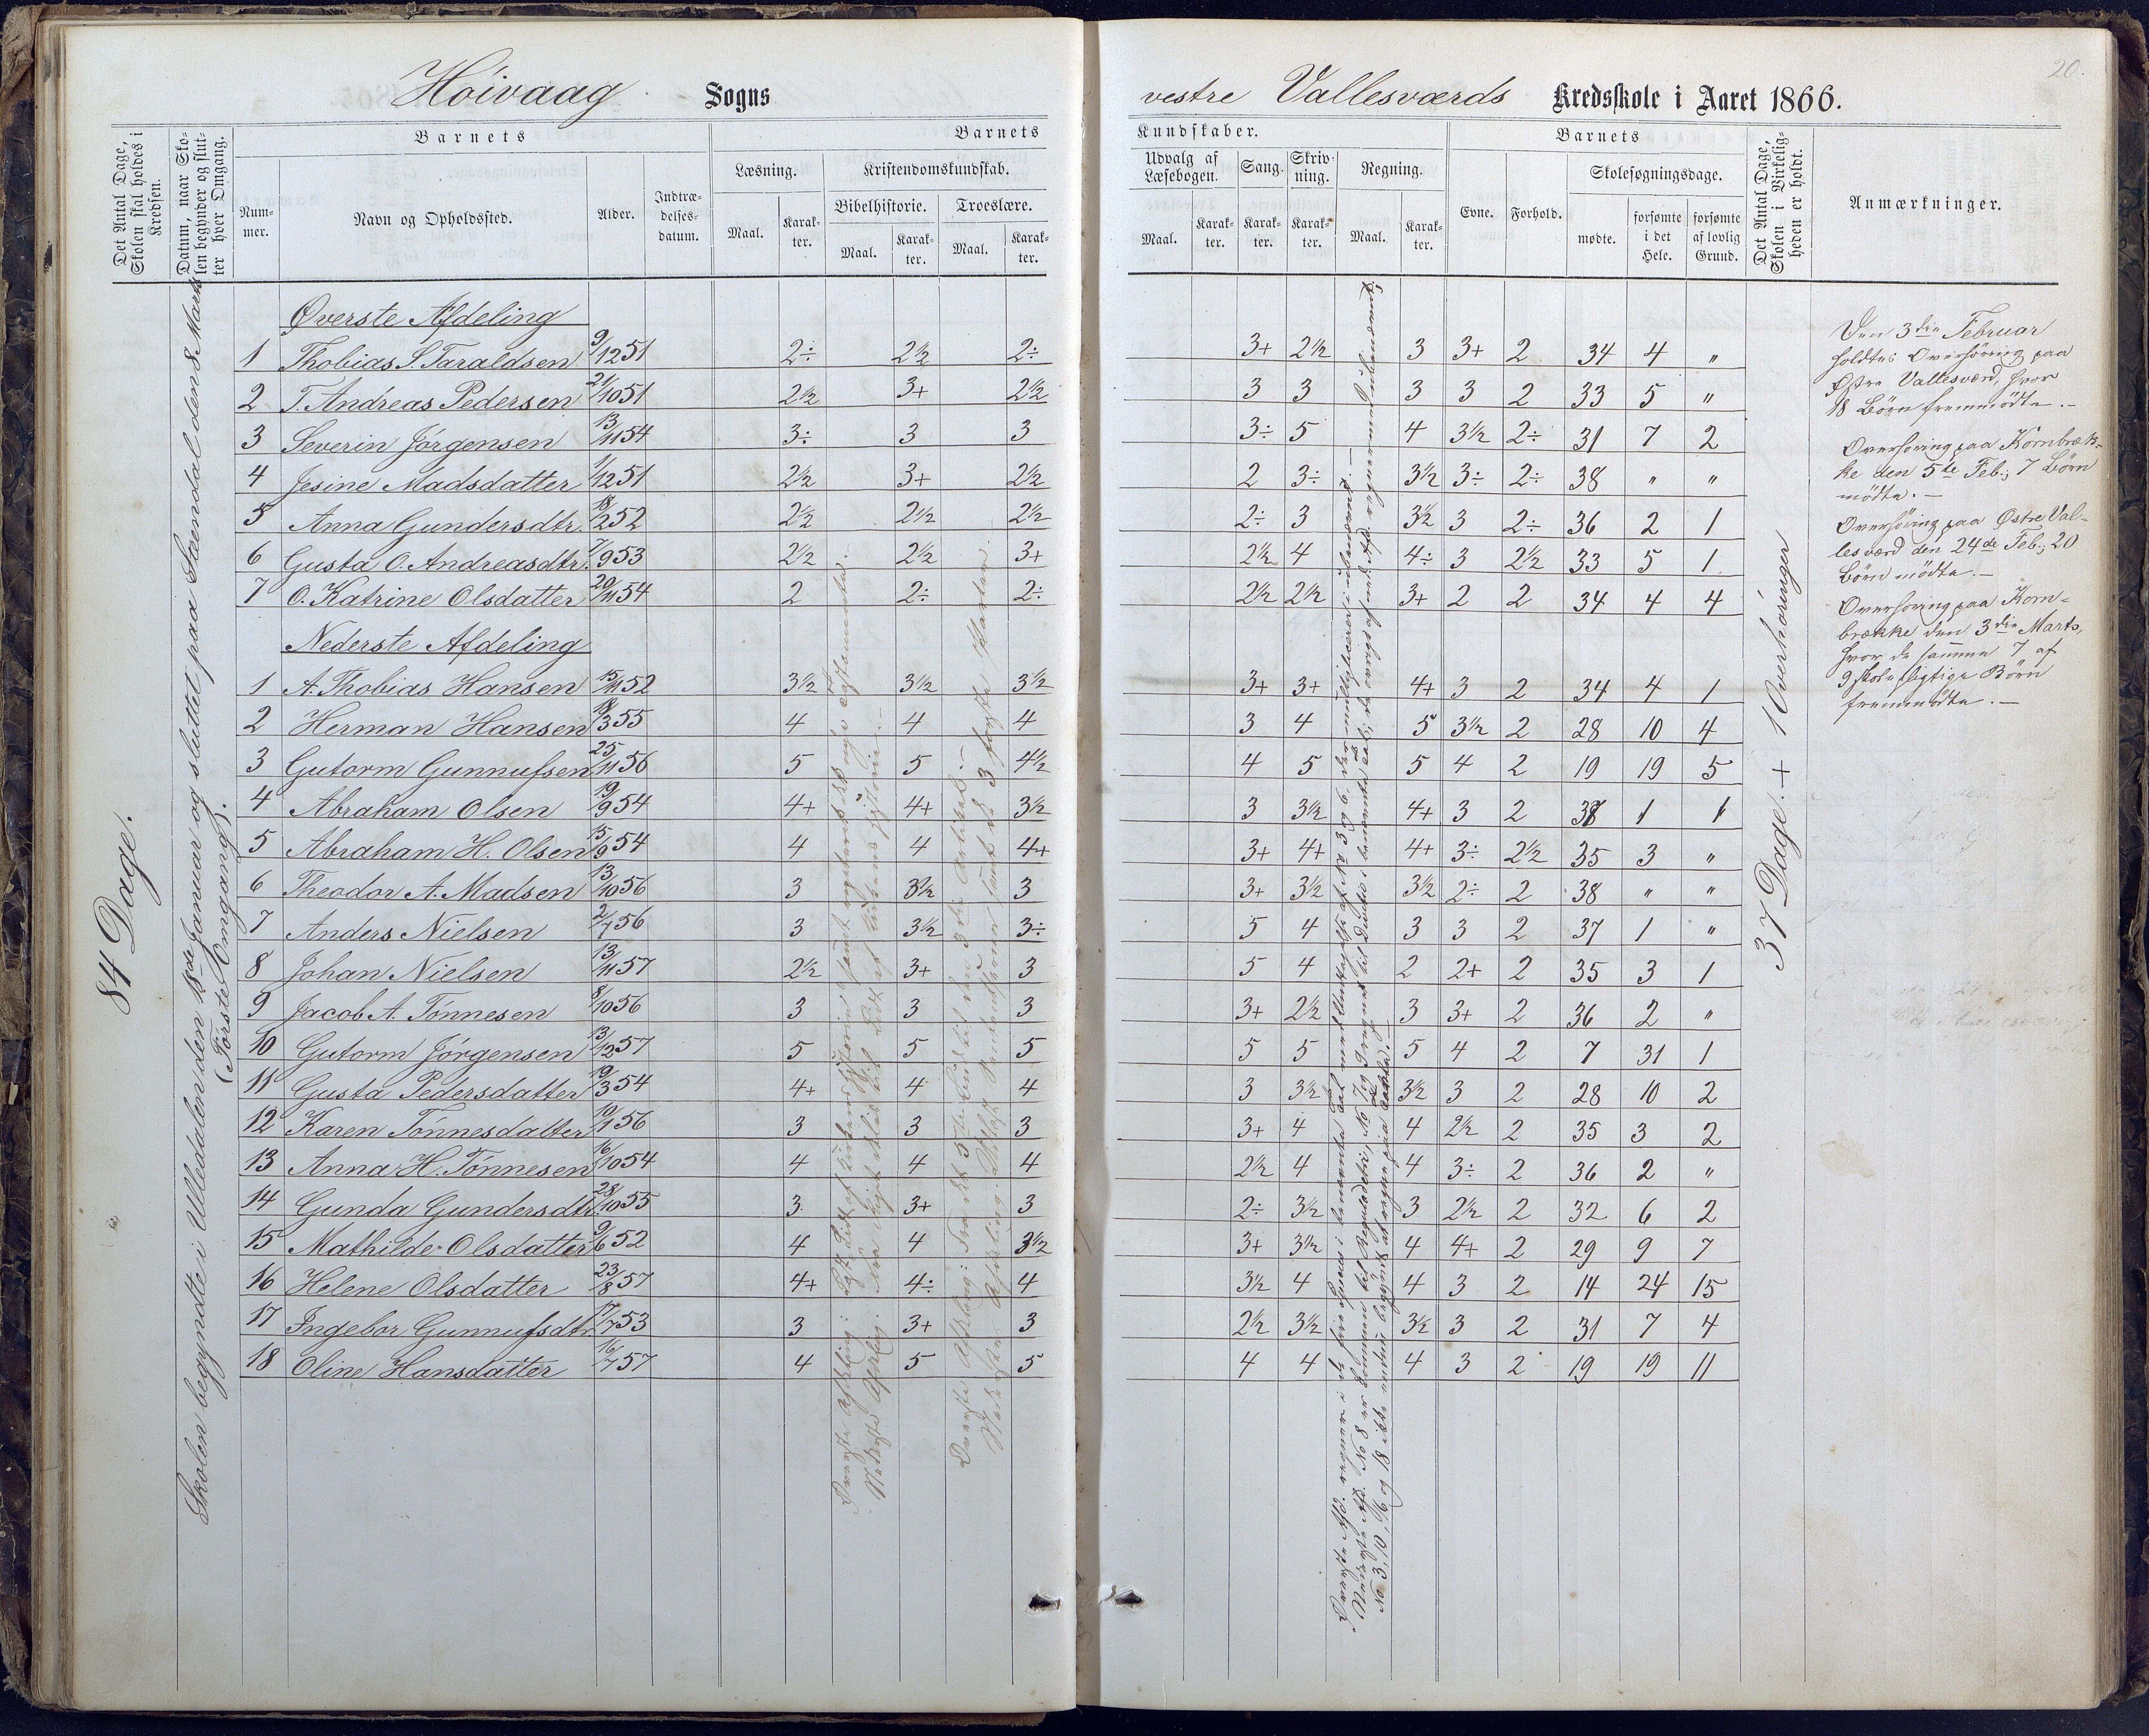 20.
Höivaag Sogns
vestre Vallesværds Kredsskole i Aaret 1866.
Det Antal Dage, Skolen skal holdes i Kredsen.
Datum, naar Skolen begynder og slutter hver Omgang.
Barnets
Nummer.
Navn og Opholdssted.
Alder.
Indtrædelsesdatum.
Barnets Kundskaber.
Læsning.
Maal.
Karakter.
Kristendomskundskab.
Bibelhistorie.
Maal.
Karakter.
Troeslære.
Maal.
Karakter.
Udvalg af Læsebogen.
Maal.
Karakter.
Sang.
Karakter.
Skrivning.
Karakter.
Regning.
Maal.
Karakter.
Barnets
Evne.
Forhold.
Skolesøgningsdage.
mødte.
forsømte i det Hele.
forsømte af lovlig Grund.
Det Antal Dage, Skolen i Virkeligheden er holdt.
Anmærkninger.
84 Dage.
Skolen begyndte i Ulledalen den 18de Januar og sluttet paa Stendal den 8 Marts
(Förste Omgang).
Øverste Afdeling
1 Thobias S. Taraldsen 9/12 51 2÷ 2½ 2÷ 3+ 2½ 3 3+ 2 34 4 "
2 T. Andreas Pedersen 21/10 51 2½ 3+ 2½ 3 3 3 3 2 33 5 "
3 Severin Jörgensen 13/11 54 3÷ 3 3 3÷ 5 4 3½ 2÷ 31 7 2
4 Jesine Madsdatter 1/12 51 2½ 3+ 2½ 2 3÷ 3½ 3÷ 2÷ 38 " "
5 Anna Gundersdtr. 18/2 52 2½ 2½ 2½ 2÷ 3 3½ 3 2÷ 36 2 1
6 Gusta O. Andreasdtr. 7/9 53 2½ 2½ 3+ 2½ 4 4÷ 3 2½ 33 5 1
7 O. Katrine Olsdatter 20/11 54 2 2÷ 2÷ 2½ 2½ 3+ 2 2 34 4 4
Nederste Afdeling
1 A. Thobias Hansen 15/11 52 3½ 3½ 3½ 3+ 3+ 4+ 3 2 34 4 1
2 Herman Hansen 18/3 55 4 4 4 3 4 5 3½ 2 28 10 4
3 Gutorm Gunnufsen 25/11 56 5 5 4½ 4 5 5 4 2 19 19 5
4 Abraham Olsen 19/9 54 4+ 4+ 3½ 3 3½ 4+ 3 2 37 1 1
5 Abraham H. Olsen 15/9 54 4 4 4+ 3+ 4+ 4+ 3÷ 2½ 35 3 "
6 Theodor A. Madsen 13/10 56 3 3½ 3 3+ 3½ 3½ 2÷ 2 38 " "
7 Anders Nielsen 2/7 56 3 3½ 3÷ 5 4 3 3 2 37 1 "
8 Johan Nielsen 13/11 57 2½ 3+ 3 5 4 2 2+ 2 35 3 1
9 Jacob A. Tönnesen 8/10 56 3 3 3 3+ 2½ 3 3+ 2 36 2 "
10 Gutorm Jörgensen 13/12 57 5 5 5 5 5 5 4 2 7 31 1
11 Gusta Pedersdatter 19/3 54 4+ 4 4 3 3½ 3½ 3 2 28 10 2
12 Karen Tönnesdatter 10/1 56 3 3 3 3+ 4 4 2½ 2 35 3 2
13 Anna H. Tönnesen 16/10 54 4 4 4 2½ 4 4 3÷ 2 36 2 "
14 Gunda Gundersdtr. 28/10 55 3 3+ 3 2÷ 3½ 3 2½ 2 32 6 2
15 Mathilde Olsdatter 9/6 52 4 4 3½ 3+ 3½ 4 4+ 2 29 9 7
16 Helene Olsdatter 23/8 57 4+ 4÷ 4 3½ 4 4 3 2 14 24 15
17 Ingebor Gunnufsdtr. 17/7 53 3 3+ 3 2½ 3½ 3½ 3 2 31 7 4
18 Oline Hansdatter 16/7 57 4 5 5 4 4 4 3 2 19 19 11
37 Dage. + 1 Overhöringer
Den 3die Februar
holdtes Overhöring paa
Østre Vallesværd, hvor
18 Börn fremmödte.-
Overhöring paa Kornbræk-
ke den 5te Feb.; 7 Börn
mödte.-
Overhöring paa Østre Val-
lesværd den 24de Feb.; 20
Börn mödte.-
Overhöring paa Korn-
brække den 3die Marts,
hvor de samme 7 af
9 skolepligtige Börn
fremmödte.-